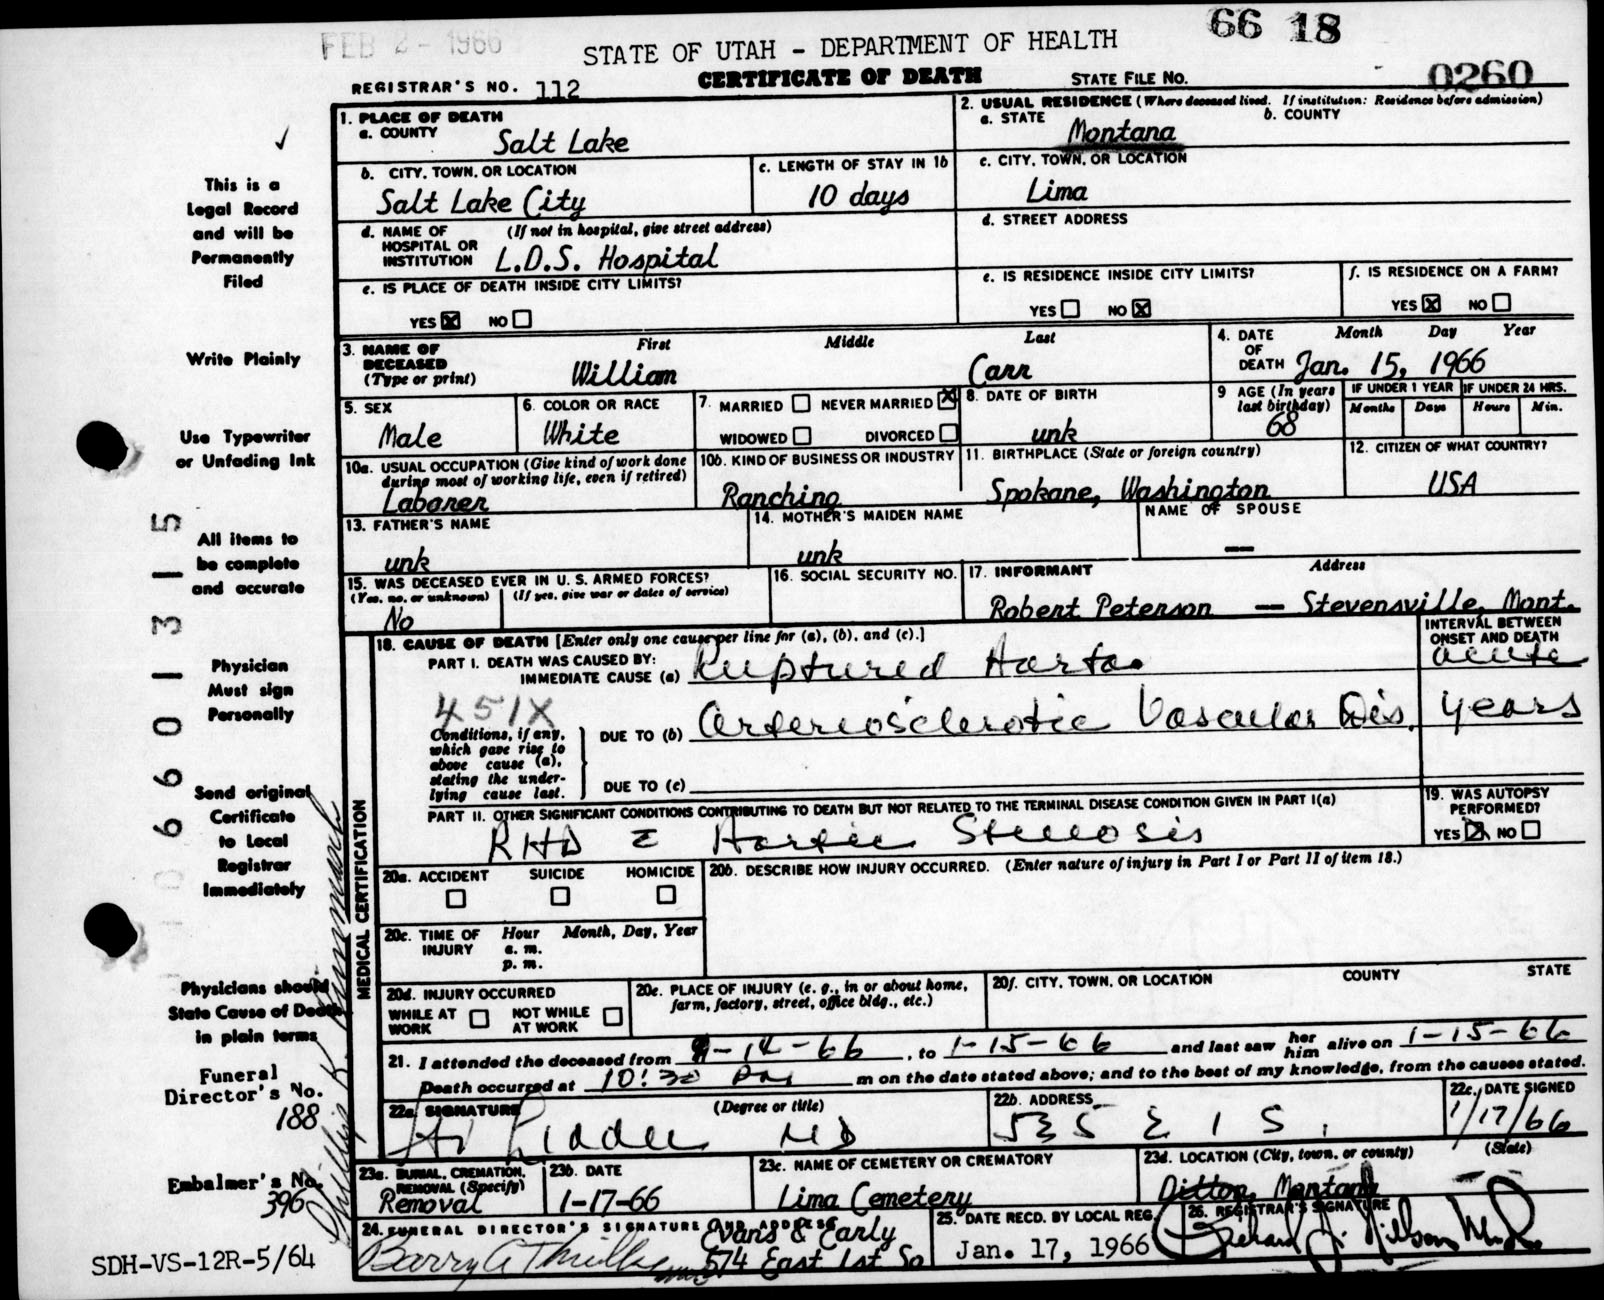 FEB 2 - 1966
66 18
STATE OF UTAH - DEPARTMENT OF HEALTH
CERTIFICATE OF DEATH
REGISTRAR'S NO. 112
STATE FILE NO. 0260
1. PLACE OF DEATH
a. COUNTY
Salt Lake
2. USUAL RESIDENCE (Where deceased lived. If institution: Residence before admission)
a. STATE
b. COUNTY
Montana
b. CITY, TOWN, OR LOCATION
Salt Lake City
c. LENGTH OF STAY IN 1b
10 days
c. CITY, TOWN, OR LOCATION
Lima
d. NAME OF HOSPITAL OR INSTITUTION
(If not in hospital, give street address)
L.D.S. Hospital
d. STREET ADDRESS
e. IS PLACE OF DEATH INSIDE CITY LIMITS?
YES ☒ NO ☐
e. IS RESIDENCE INSIDE CITY LIMITS?
YES ☐ NO ☒
f. IS RESIDENCE ON A FARM?
YES ☒ NO ☐
3. NAME OF DECEASED
(Type or print)
First Middle Last
William Carr
4. DATE OF DEATH
Month Day Year
Jan. 15, 1966
5. SEX
Male
6. COLOR OR RACE
White
7. MARRIED ☐ NEVER MARRIED ☒
WIDOWED ☐ DIVORCED ☐
8. DATE OF BIRTH
unk
9 AGE (In years last birthday)
68
IF UNDER 1 YEAR
Months Days
IF UNDER 24 HRS.
Hours Min.
10a. USUAL OCCUPATION (Give kind of work done during most of working life, even if retired)
Laborer
10b. KIND OF BUSINESS OR INDUSTRY
Ranching
11. BIRTHPLACE (State or foreign country)
Spokane, Washington
12. CITIZEN OF WHAT COUNTRY?
USA
13. FATHER'S NAME
unk
14. MOTHER'S MAIDEN NAME
unk
NAME OF SPOUSE
—
15. WAS DECEASED EVER IN U. S. ARMED FORCES?
(Yes, no, or unknown) (If yes, give war or dates of service)
No
16. SOCIAL SECURITY NO.
17. INFORMANT Address
Robert Peterson — Stevensville, Mont.
18. CAUSE OF DEATH [Enter only one cause per line for (a), (b), and (c).]
INTERVAL BETWEEN ONSET AND DEATH
PART I. DEATH WAS CAUSED BY:
IMMEDIATE CAUSE (a) Ruptured Aorta
acute
451X
Conditions, if any, which gave rise to above cause (a), stating the underlying cause last.
DUE TO (b) Arteriosclerotic Vascular Dis.
years
DUE TO (c)
PART II. OTHER SIGNIFICANT CONDITIONS CONTRIBUTING TO DEATH BUT NOT RELATED TO THE TERMINAL DISEASE CONDITION GIVEN IN PART I(a)
RHD c Aortic Stenosis
19. WAS AUTOPSY PERFORMED?
YES ☒ NO ☐
MEDICAL CERTIFICATION
20a. ACCIDENT SUICIDE HOMICIDE
☐ ☐ ☐
20b. DESCRIBE HOW INJURY OCCURRED. (Enter nature of injury in Part I or Part II of item 18.)
20c. TIME OF INJURY
Hour Month, Day, Year
a. m.
p. m.
20d. INJURY OCCURRED
WHILE AT WORK ☐ NOT WHILE AT WORK ☐
20e. PLACE OF INJURY (e. g., in or about home, farm, factory, street, office bldg., etc.)
20f. CITY, TOWN, OR LOCATION COUNTY STATE
21. I attended the deceased from 1-14-66, to 1-15-66 and last saw her him alive on 1-15-66
Death occurred at 10:30 PM m on the date stated above; and to the best of my knowledge, from the causes stated.
22a. SIGNATURE (Degree or title)
MD
22b. ADDRESS
535 E 1 S.
22c. DATE SIGNED
1/17/66
23a. BURIAL, CREMATION, REMOVAL (Specify)
Removal
23b. DATE
1-17-66
23c. NAME OF CEMETERY OR CREMATORY
Lima Cemetery
23d. LOCATION (City, town, or county) (State)
Dillon, Montana
24. FUNERAL DIRECTOR'S SIGNATURE AND ADDRESS
Evans & Early
574 East 1st So
25. DATE RECD. BY LOCAL REG.
Jan. 17, 1966
26. REGISTRAR'S SIGNATURE
This is a
Legal Record
and will be
Permanently
Filed
Write Plainly
Use Typewriter
or Unfading Ink
All items to
be complete
and accurate
Physician
Must sign
Personally
Send original
Certificate
to Local
Registrar
Immediately
Physicians should
State Cause of Death
in plain terms
Funeral
Director's No.
188
Embalmer's No.
396
SDH-VS-12R-5/64
6601315